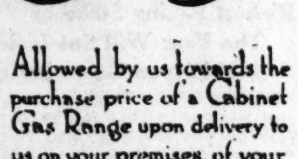 Allowed by us towards the
purchase price of a Cabinet
Gas Range upon delivery to
us on your premises, of your